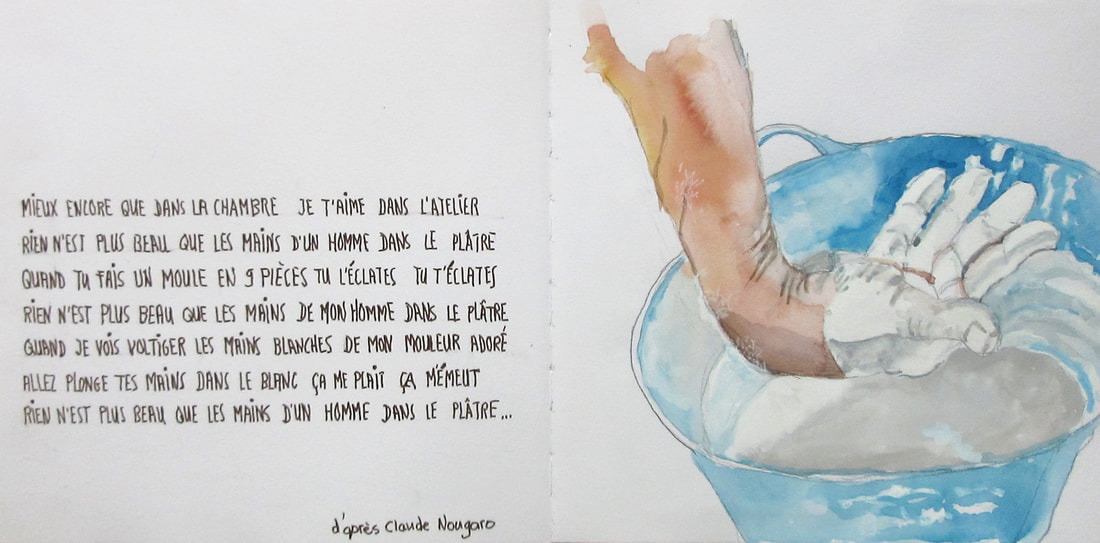 MIEUX ENCORE QUE DANS LA CHAMBRE JE T'AIME DANS L'ATELIER
RIEN N'EST PLUS BEAU QUE LES MAINS D'UN HOMME DANS LE PLÂTRE
QUAND TU FAIS UN MOULE EN 9 PIÈCES TU L'ÉCLATES TU T'ÉCLATES
RIEN N'EST PLUS BEAU QUE LES MAINS DE MON HOMME DANS LE PLÂTRE
QUAND JE VOIS VOLTIGER LES MAINS BLANCHES DE MON MOULEUR ADORÉ
ALLEZ PLONGE TES MAINS DANS LE BLANC ÇA ME PLAIT ÇA M'ÉMEUT
RIEN N'EST PLUS BEAU QUE LES MAINS D'UN HOMME DANS LE PLÂTRE...
d'après Claude Nougaro